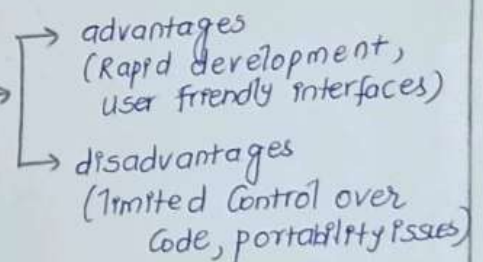 advantages
(Rapid development,
user friendly interfaces)
disadvantages
(limited Control over
Code, portability issues)